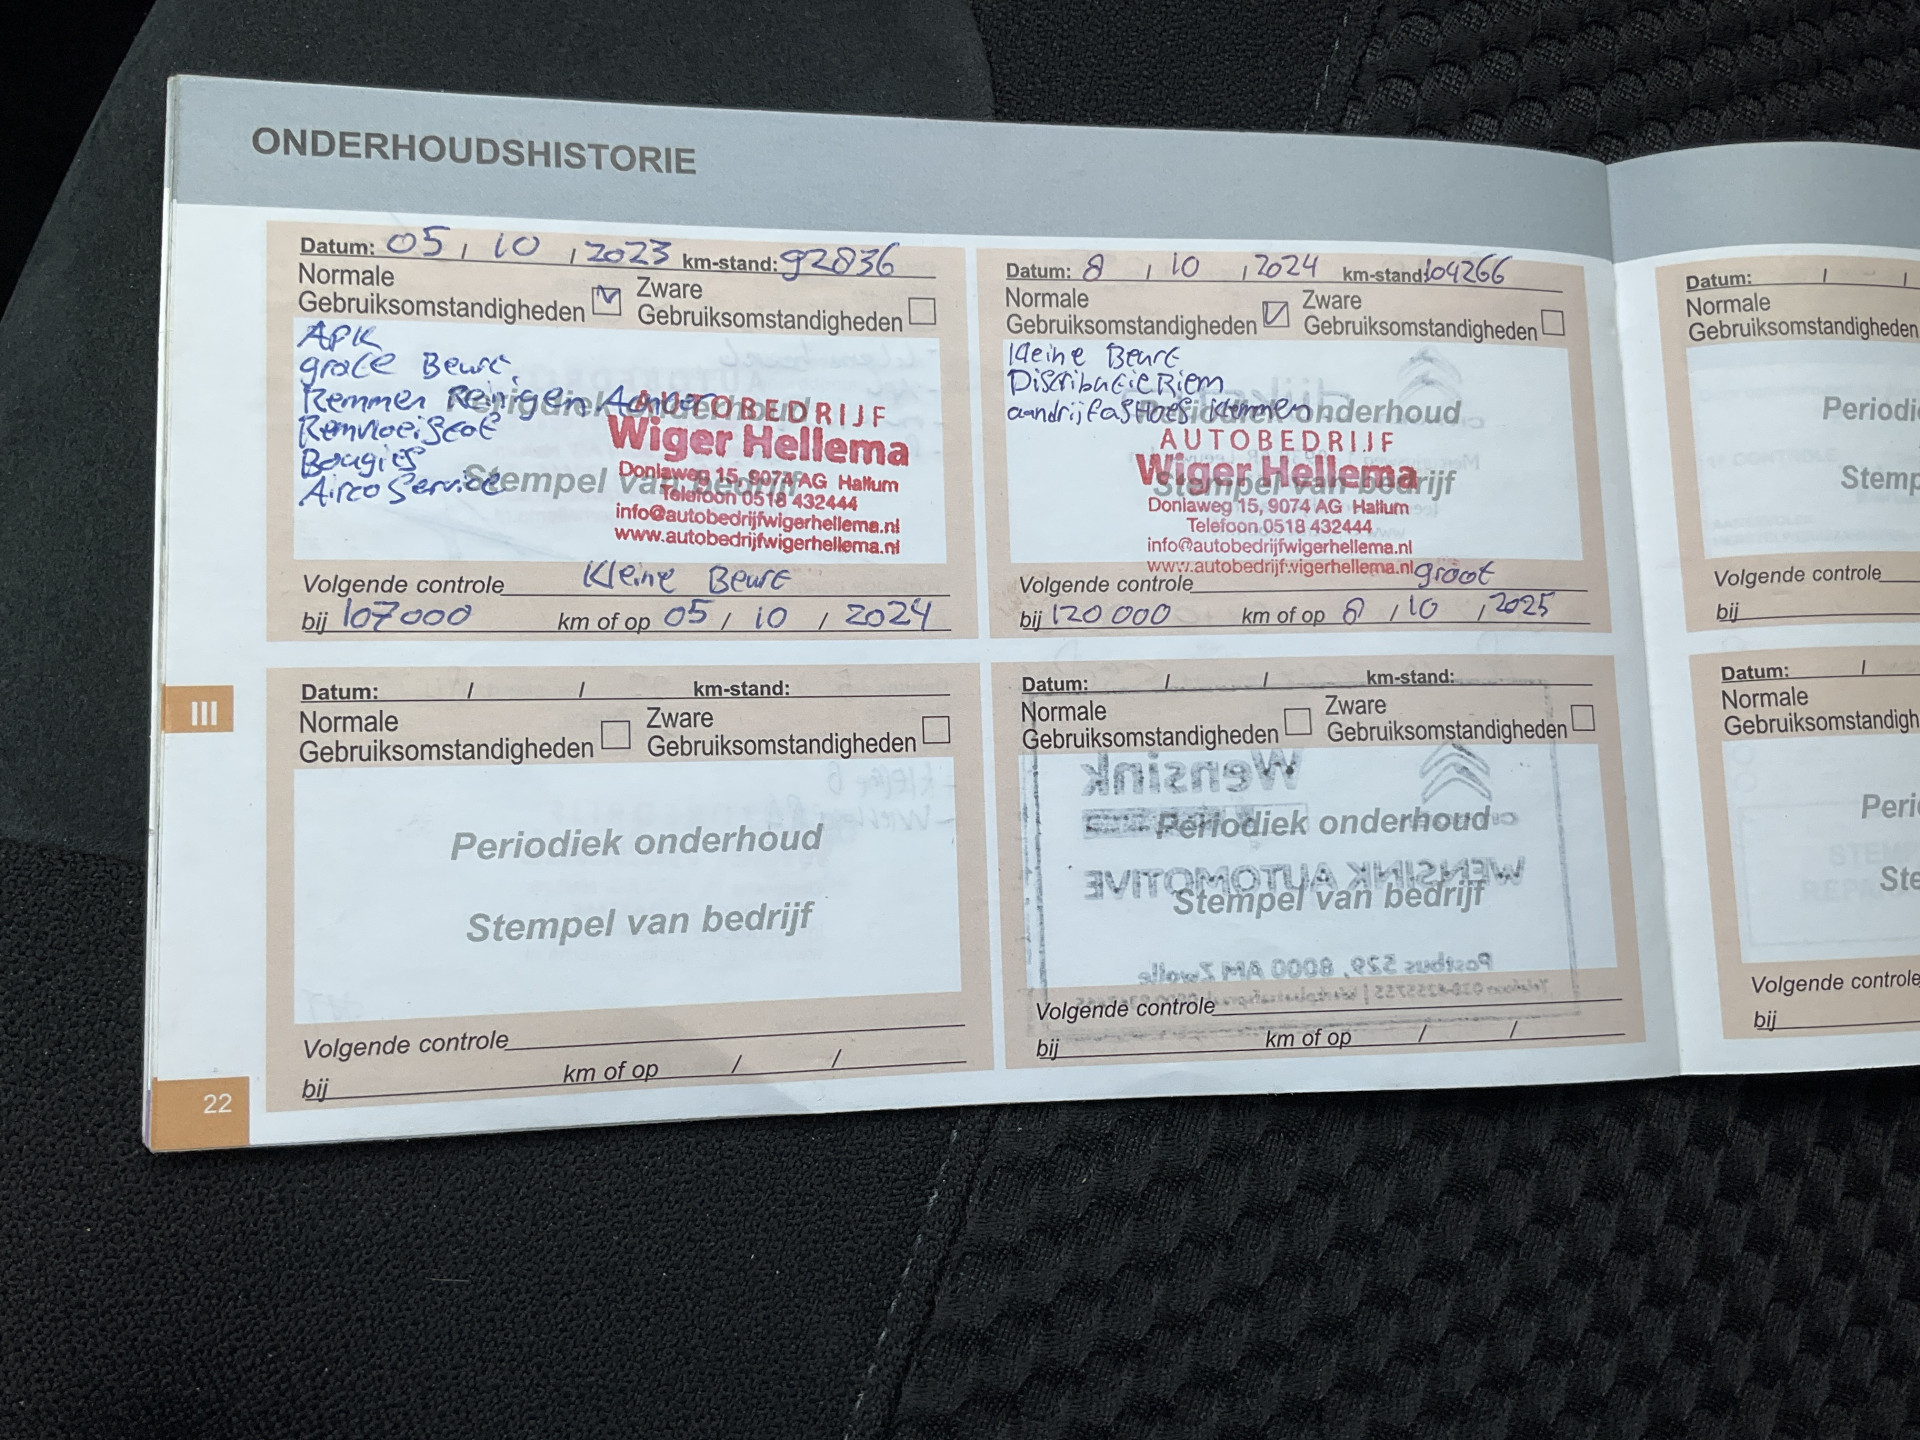 ONDERHOUDSHISTORIE
Datum: 05 / 10 / 2023 km-stand: 92836
Normale
Gebruiksomstandigheden
Zware
Gebruiksomstandigheden
APK
grote Beurt.
Remmen Reinigen Achter
Remvloeistof
Bougies
Airco Service
Periodiek onderhoud
Stempel van bedrijf
AUTOBEDRIJF
Wiger Hellema
Doniaweg 15, 9074 AG Hallum
Telefoon 0518 432444
info@autobedrijfwigerhellema.nl
www.autobedrijfwigerhellema.nl
Volgende controle Kleine Beurt
bij 107000 km of op 05 / 10 / 2024
Datum: 8 / 10 / 2024 km-stand: 104266
Normale
Gebruiksomstandigheden
Zware
Gebruiksomstandigheden
Kleine Beurt
Distributie Riem
Periodiek onderhoud
Stempel van bedrijf
AUTOBEDRIJF
Wiger Hellema
Doniaweg 15, 9074 AG Hallum
Telefoon 0518 432444
info@autobedrijfwigerhellema.nl
www.autobedrijfwigerhellema.nl
Volgende controle groot
bij 120 000 km of op 8 / 10 / 2025
Datum: / / km-stand:
Normale
Gebruiksomstandigheden
Zware
Gebruiksomstandigheden
Periodiek onderhoud
Stempel van bedrijf
Volgende controle
bij km of op / /
Datum: / / km-stand:
Normale
Gebruiksomstandigheden
Zware
Gebruiksomstandigheden
Periodiek onderhoud
Stempel van bedrijf
Volgende controle
bij km of op / /
III
22
Datum: / /
Normale
Gebruiksomstandigheden
Periodi
Stemp
Volgende controle
bij
Datum: /
Normale
Gebruiksomstandigh
Peri
Ste
Volgende controle
bij